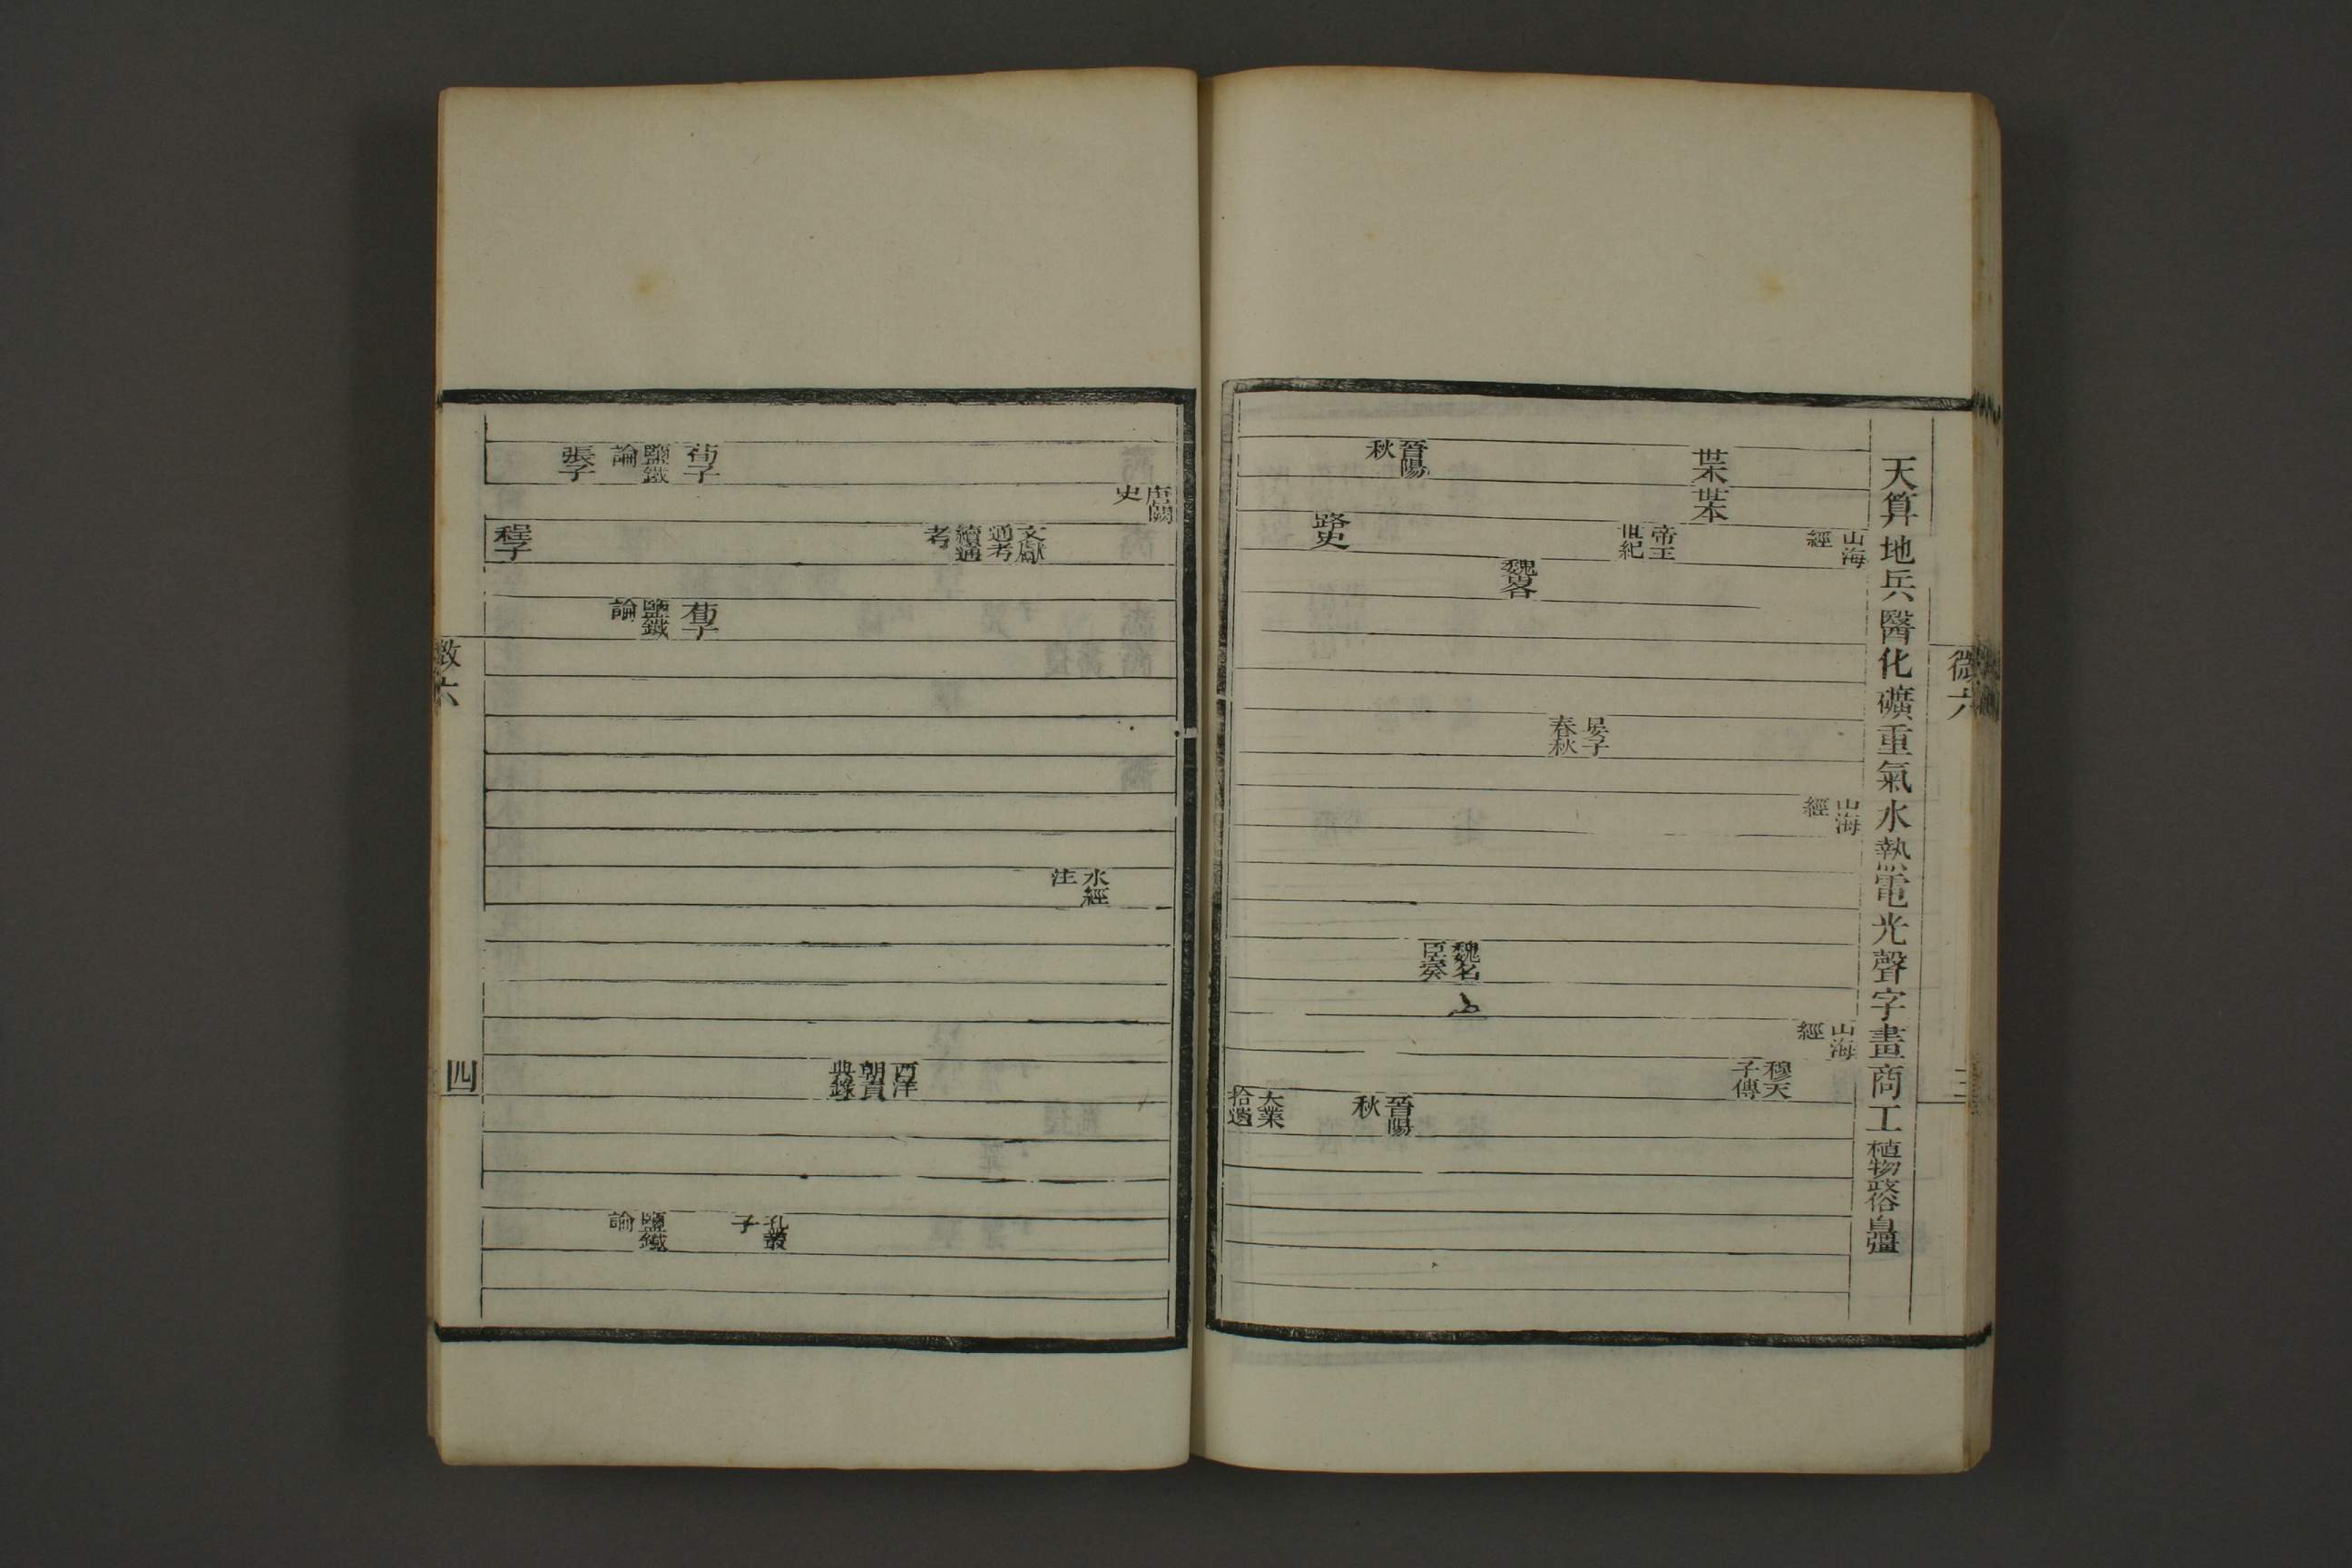 微六
三
天算地兵醫化礦重氣水熱電光聲字畫商工植物政俗自彊
山海經
山海經
山海經
穆天子傳
世本
世本
帝王世紀
晏子春秋
魏略
魏名臣奏
晉陽秋
晉陽秋
路史
大業拾遺
唐闕史
水經注
文獻通考
續通考
西洋朝貢典錄
孔叢子
荀子
荀子
鹽鐵論
鹽鐵論
鹽鐵論
張子
程子
微六
四